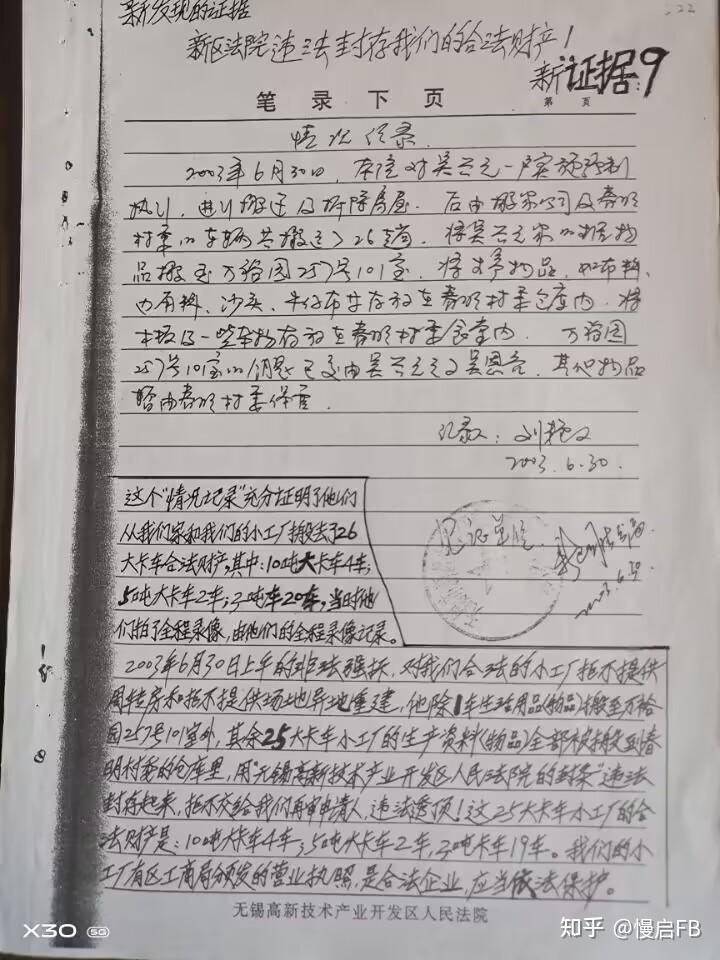 新发现的证据
新区法院违法封存我们的合法财产!
新证据9
笔录下页
第 页
情况记录
2003年6月30日,本院对吴云元一户实施强制
执行,进行搬迁及拆除房屋。后由搬家公司及春明
村委的车辆共搬迁了26车,将吴云元家的
品搬至万裕园257号101室,将其等物品,如布料、
沙头、牛仔布等存放在春明村委仓库内,将
木板及一些杂物存放在春明村委食堂内。万裕园
257号101室的钥匙已交由吴云元之,其他物品
暂由春明村委保管。
记录:
2003.6.30.
这个“情况记录”充分证明了他们
从我们家和我们的小工厂搬去了26
大卡车合法财产,其中:10吨大卡车4车;
5吨大卡车2车;3吨车20车,当时他
们拍了全程录像,由他们的全程录像记录。
见证单位
2003.6.30
2003年6月30日上午的非法强拆,对我们合法的小工厂拒不提供
周转房和拒不提供场地异地重建,他除1车生活用品(物品)搬至万裕
园257号101室外,其余25大卡车小工厂的生产资料(物品)全部被搬到春
明村委的仓库里,用“无锡高新技术产业开发区人民法院的封条”违法
封存起来,拒不交给我们再审申请人,违法透顶!这25大卡车小工厂的合
法财产是:10吨大卡车4车;5吨大卡车2车,3吨卡车19车。我们的小
工厂有区工商局颁发的营业执照,是合法企业,应当依法保护。
无锡高新技术产业开发区人民法院
X30 5G
知乎 @慢启FB